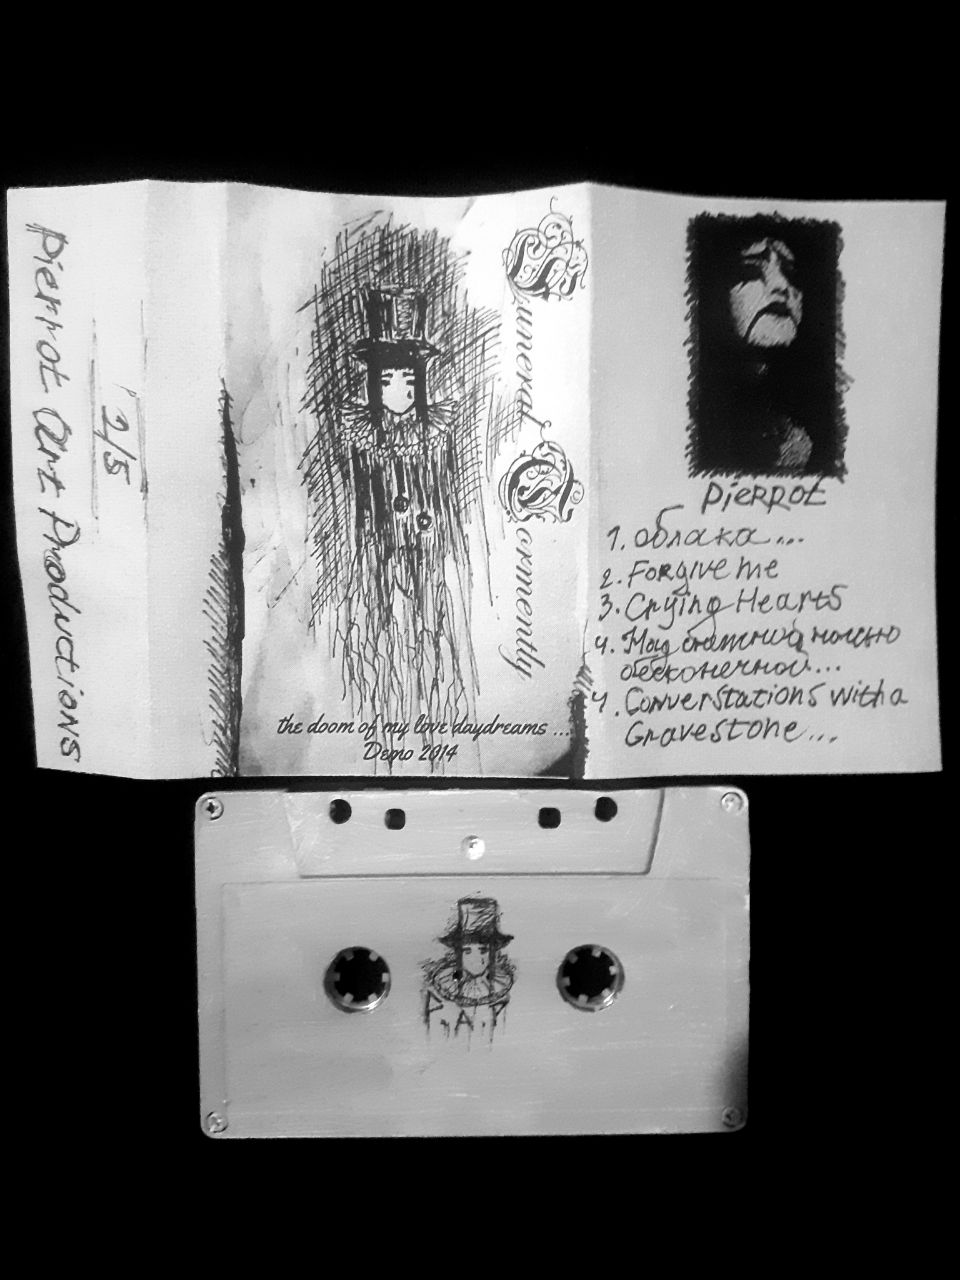 Pierrot Art Productions
2/5
Funeral Tormently
the doom of my love daydreams ...
Demo 2014
pierrot
1. облака...
2. Forgive me
3. Crying Hearts
4. Над ночью
бесконечной...
4. Converstations with a
Gravestone...
P.A.P